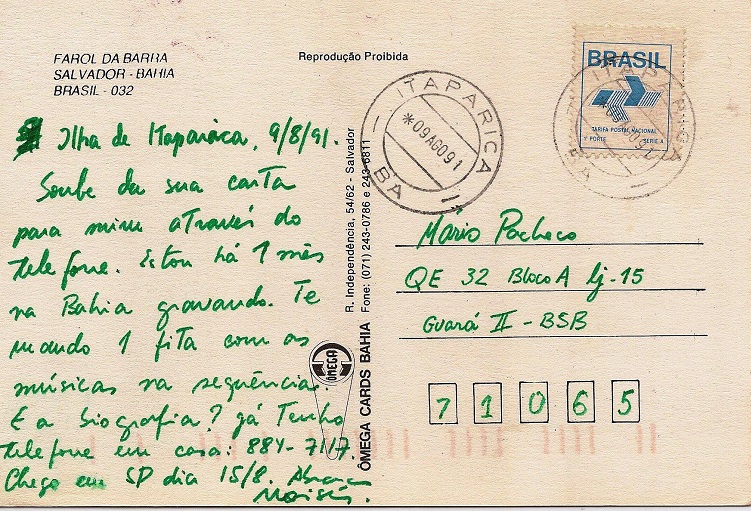 FAROL DA BARRA
SALVADOR - BAHIA
BRASIL - 032
Reprodução Proibida
Ilha de Itaparica, 9/8/91.
Soube da sua carta
para mim através do
telefone. Estou há 1 mês
na Bahia gravando. Te
mando 1 fita com as
músicas na sequência.
E a biografia? Já tenho
telefone em casa: 884-7117.
Chego em SP dia 15/8. Abraços
Moisés.
R. Independência, 54/62 - Salvador
Fone: (071) 243-0786 e 243-6811
ÔMEGA
ÔMEGA CARDS BAHIA
ITAPARICA
*09AGO91
BA
BRASIL
TARIFA POSTAL NACIONAL
1º PORTE SÉRIE A
ITAPARICA
BA
Mário Pacheco
QE 32 Bloco A lj-15
Guará II - BSB
71065